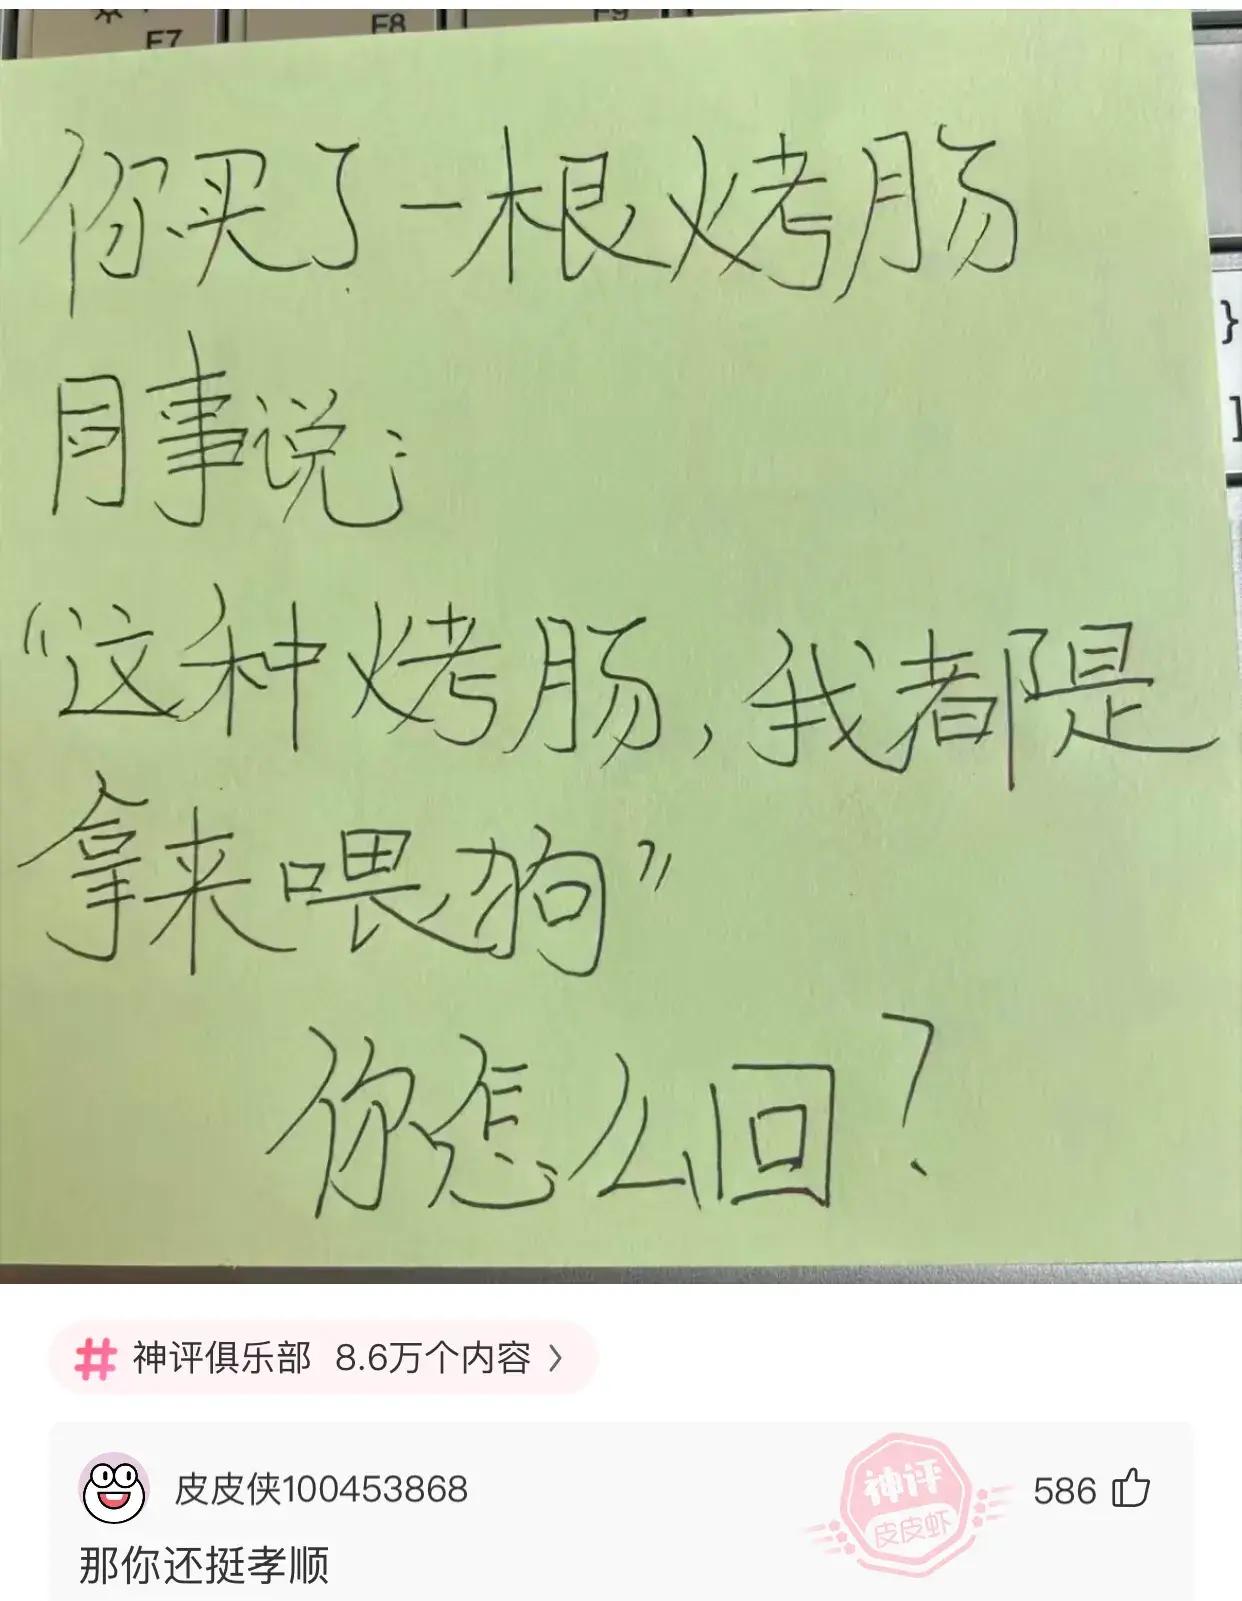 F7
F8
F9
你买了一根烤肠
同事说:
“这种烤肠,我都是
拿来喂狗”
你怎么回?
}
]
# 神评俱乐部 8.6万个内容 >
皮皮侠100453868
神评
皮皮虾
586
那你还挺孝顺